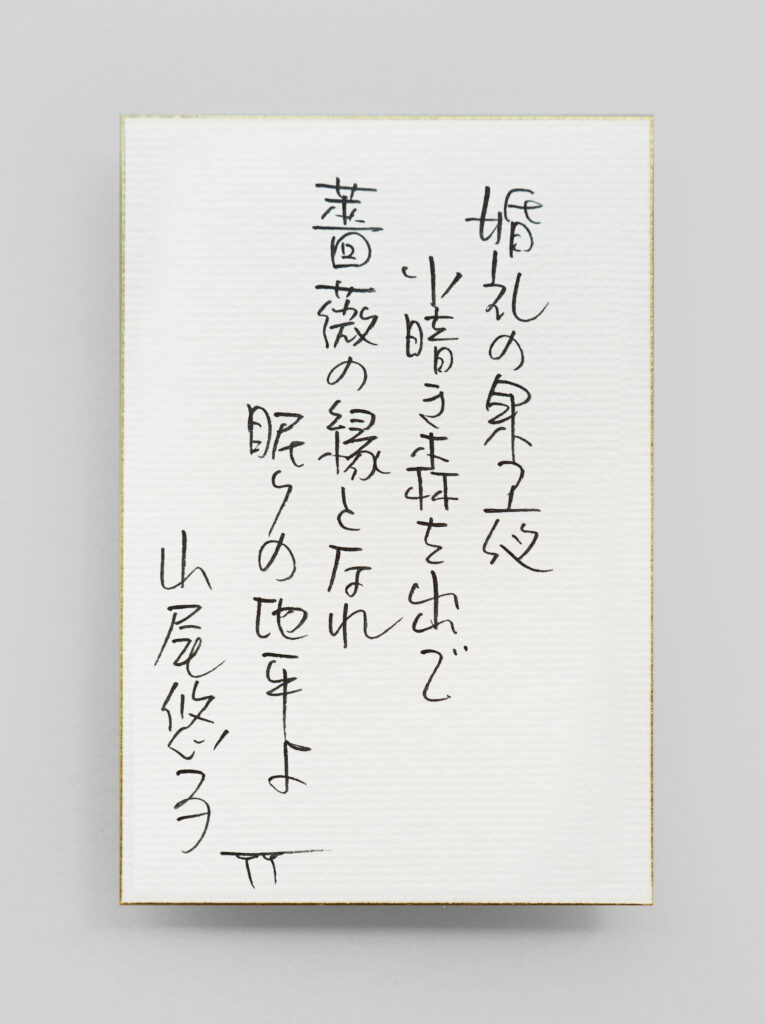 婚礼の果夜
小暗き森を出で
薔薇の縁となれ
眠りの地平よ
山尾悠子